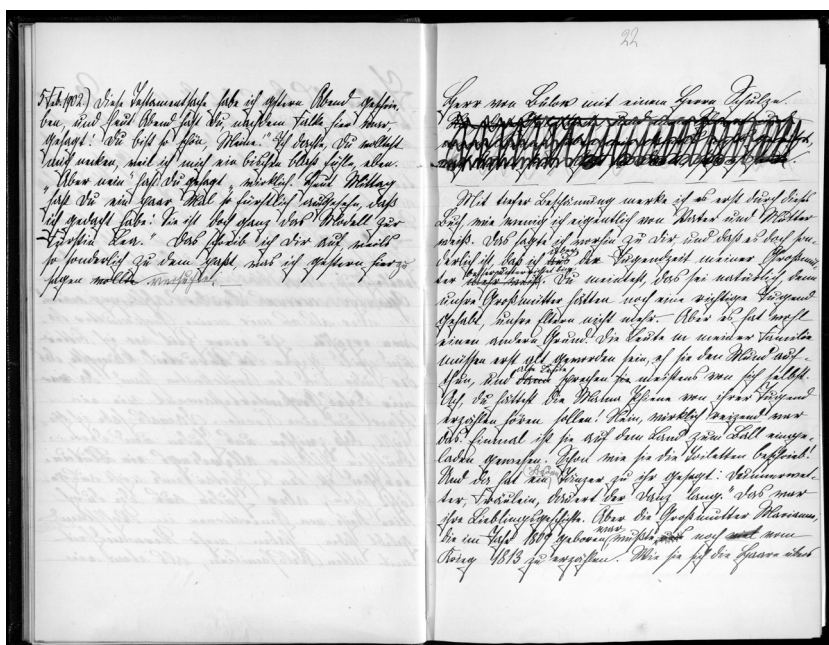 5 Feb. 1902.) Diese Testamentsache habe ich gestern Abend geschrie-
ben, und heut Abend hast Du, nachdem Falke hier war,
gesagt: „Du bist so schön, Mume." Ich dachte, Du wolltest
mich necken, weil ich mich ein bischen blaß fühle, eben.
„Aber nein" hast Du gesagt „wirklich. Heut Mittag
hast Du ein paar Mal so fürstlich ausgesehn, daß
ich gedacht habe: Sie ist doch ganz das Modell zur
Fürstin Lea." Das schreib ich Dir auf, weils
so sonderlich zu dem paßt, was ich gestern hierzu
sagen wollte versuchte.
22
Herr von Bülow mit einem Herrn Schulze.
Mit tiefer Beschämung merke ich es erst durch dieses
Buch, wie wenig ich eigentlich von Vater und Mutter
weiß. Das sagte ich vorhin zu Dir, und daß es doch son-
derlich ist, daß ich über aus der Jugendzeit meiner Großmüt-
ter mehr weiß. Du meintest, das sei natürlich, denn
unsre Großmütter hätten noch eine richtige Jugend
gehabt, unsre Eltern nicht mehr. Aber es hat wohl
einen andern Grund. Die Leute in meiner Familie
müssen erst alt geworden sein, eh sie den Mund auf-
thun, und dann sprechen sie meistens von sich selbst.
Ach, Du hättest die Mama Thiene von ihrer Jugend
erzählen hören sollen! Nein, wirklich reizend war
das. Einmal ist sie auf dem Land zum Ball einge-
laden gewesen. Schon wie sie die Toiletten beschrieb!
Und da hat ein Tänzer zu ihr gesagt: „Donnerwet-
ter, Fräulein, dauert der Danz lang." Das war
ihre Lieblingsgeschichte. Aber die Großmutter Marianne,
die im Jahr 1809 geboren war, wußte noch vom
Krieg 1813 zu erzählen. Wie sie sich die Haare übers